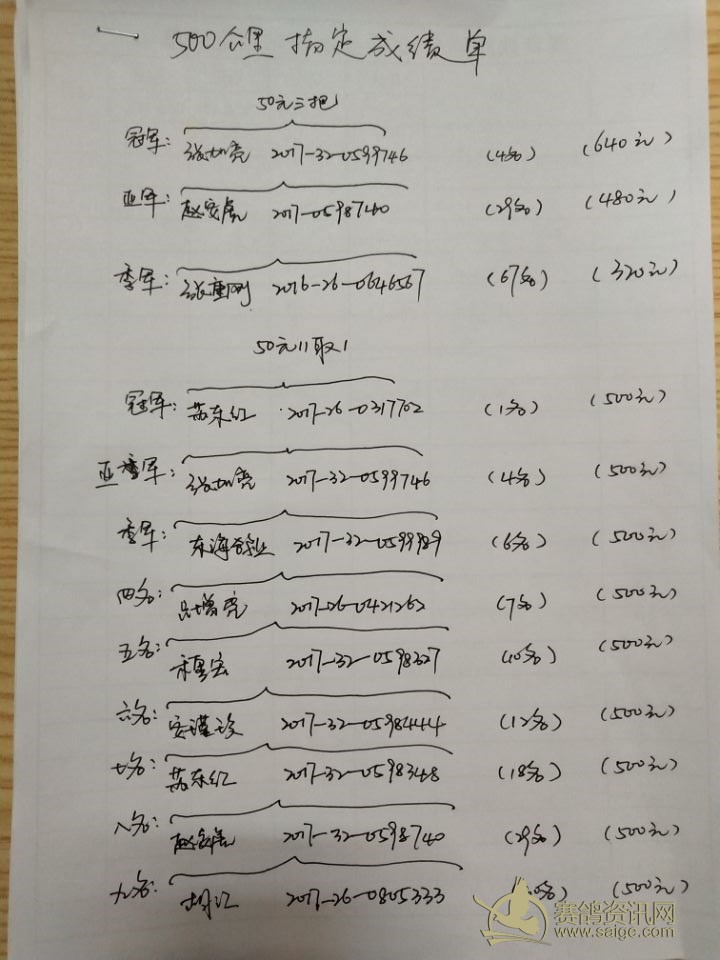 一 500公里指定成绩单
50元三把
冠军: 张如亮 2017-32-0599746 (4名) (640元)
亚军: 赵安虎 2017-0598740 (29名) (480元)
季军: 张重刚 2016-26-0646567 (67名) (320元)
50元11取1
冠军: 苏东红 2017-26-0317702 (1名) (500元)
亚季军: 张如亮 2017-32-0599746 (4名) (500元)
季军: 东海鸽业 2017-32-0599989 (6名) (500元)
四名: 吕增亮 2017-26-0421262 (7名) (500元)
五名: 2017-32-0598327 (10名) (500元)
六名: 安瑾珍 2017-32-0598444 (12名) (500元)
七名: 苏东红 2017-32-0598348 (18名) (500元)
八名: 赵安虎 2017-32-0598740 (29名) (500元)
九名: 2017-26-0805333 (500元)
赛鸽资讯网
www.saige.com